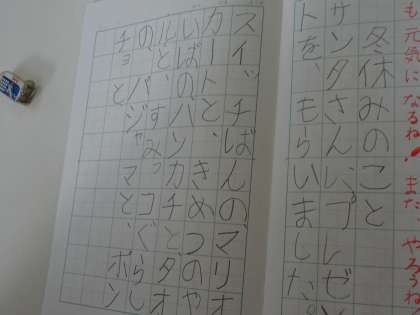 も元気になるね！また やろうね
冬休みのこと
サンタさんに、プレゼン
トを、もらいました。
スイッチばんのマリオ
カートと、きめつのや
いばの、ハンカチとタオ
ルと、すみっコぐらし
のパジャマと、ポン
チョと